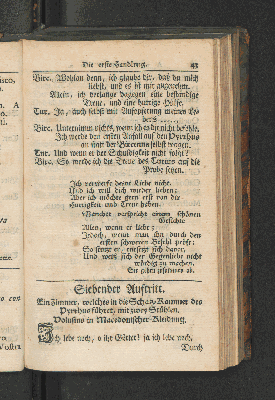 Die erste Handlung. 43
Birc. Wohlan denn, ich glaube dir, daß du mich
liebst, und es ist mir angenehm.
Allein, ich verlange dagegen eine beständige
Treue, und eine hurtige Hülfe.
Tur. Ja, auch selbst mit Aufopferung meines Le-
bens
Birc. Unternimm nichts, wenn ich es dir nicht befehle.
Ich werde den ersten Anfall auf den Pyrrhus
an statt der Barcenna selbst wagen.
Tur. Und wenn er der Schuldigkeit nicht folgt?
Birc. So werde ich die Treue des Turnus auf die
Probe setzen.
Ich verwerfe deine Liebe nicht.
Und ich will dich wieder lieben;
Aber ich möchte gern erst von die
Hurtigkeit und Treue haben.
Mancher verspricht einem schönen
Gesichte
Alles, wenn er liebt;
Jedoch, wenn man ihn durch den
ersten schweren Befehl prüft;
So seufzt er, entsetzt sich davor,
Und weis sich der Gegenliebe nicht
würdig zu machen.
Sie gehen zusammen ab.
Siebender Auftritt.
Ein Zimmer, welches in die Schatz-Kammer des
Pyrrhus führet, mit zwey Stühlen.
Volusius in Macedonischer Kleidung.
Ich lebe noch, o ihr Götter! ja ich lebe noch,
Durch